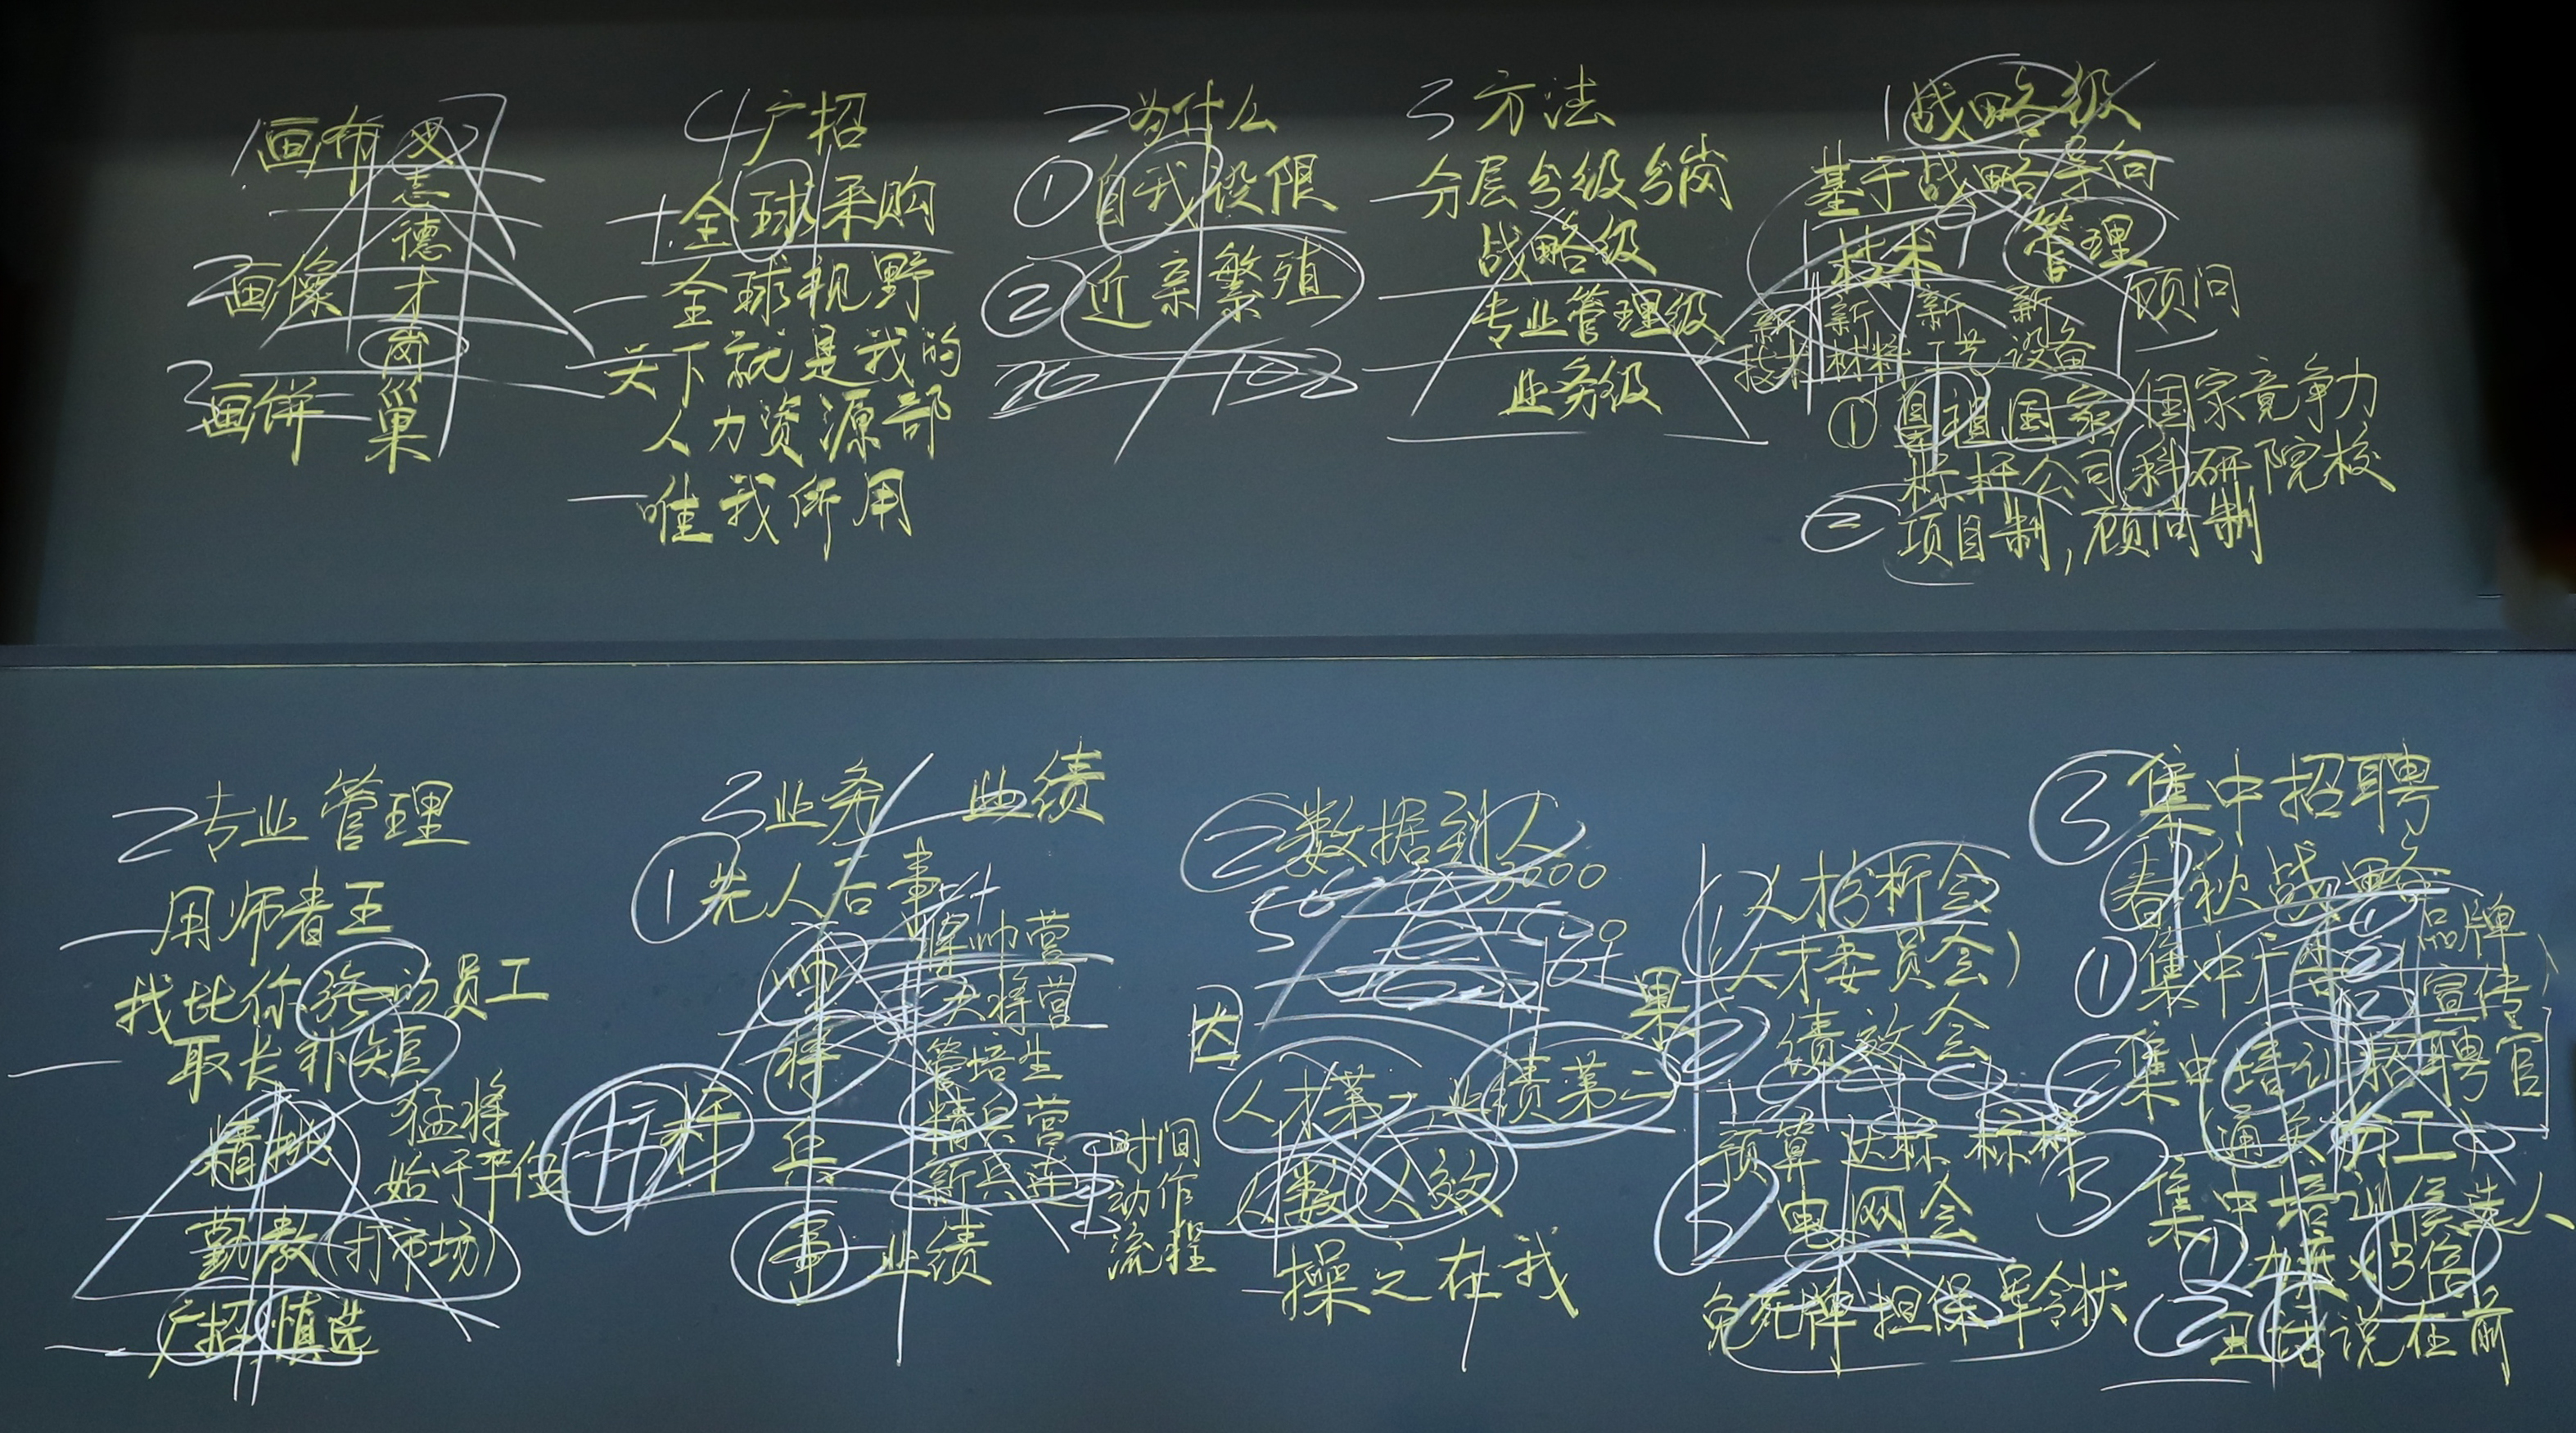 1.画布
志
德
才
岗
巢
2画像
3画饼
4广招
1.全球采购
一全球视野
一天下就是我的
人力资源部
一唯我所用
2为什么
①自我设限
②近亲繁殖
3方法
一分层分级分岗
战略级
专业管理级
业务级
1战略级
基于战略导向
技术 管理
顾问
新 新 新 新
技术 材料 工艺 设备
①
国家 国家竞争力
标杆公司 科研院校
②项目制,顾问制
2专业管理
一用师者王
找比你强的员工
一取长补短
精挑 猛将
始于卒伍
勤教(打市场)
广招慎选
3业务 业绩
①先人后事
帅
将
兵
事 业绩
标杆
将帅营
大将营
管培生
精兵营
新兵连
时间
动作
流程
②数据到人
因
果
人才第一 业绩第二
人数 人效
一操之在我
①人才析会
(人才委员会)
②绩效会
预算 达标 标杆
③电网会
免死牌 担保 军令状
③集中招聘
春秋战略
①集中广告 品牌
宣传
②集中培训 招聘官
通关 员工
③集中培训候选人
3倍
②丑话说在前